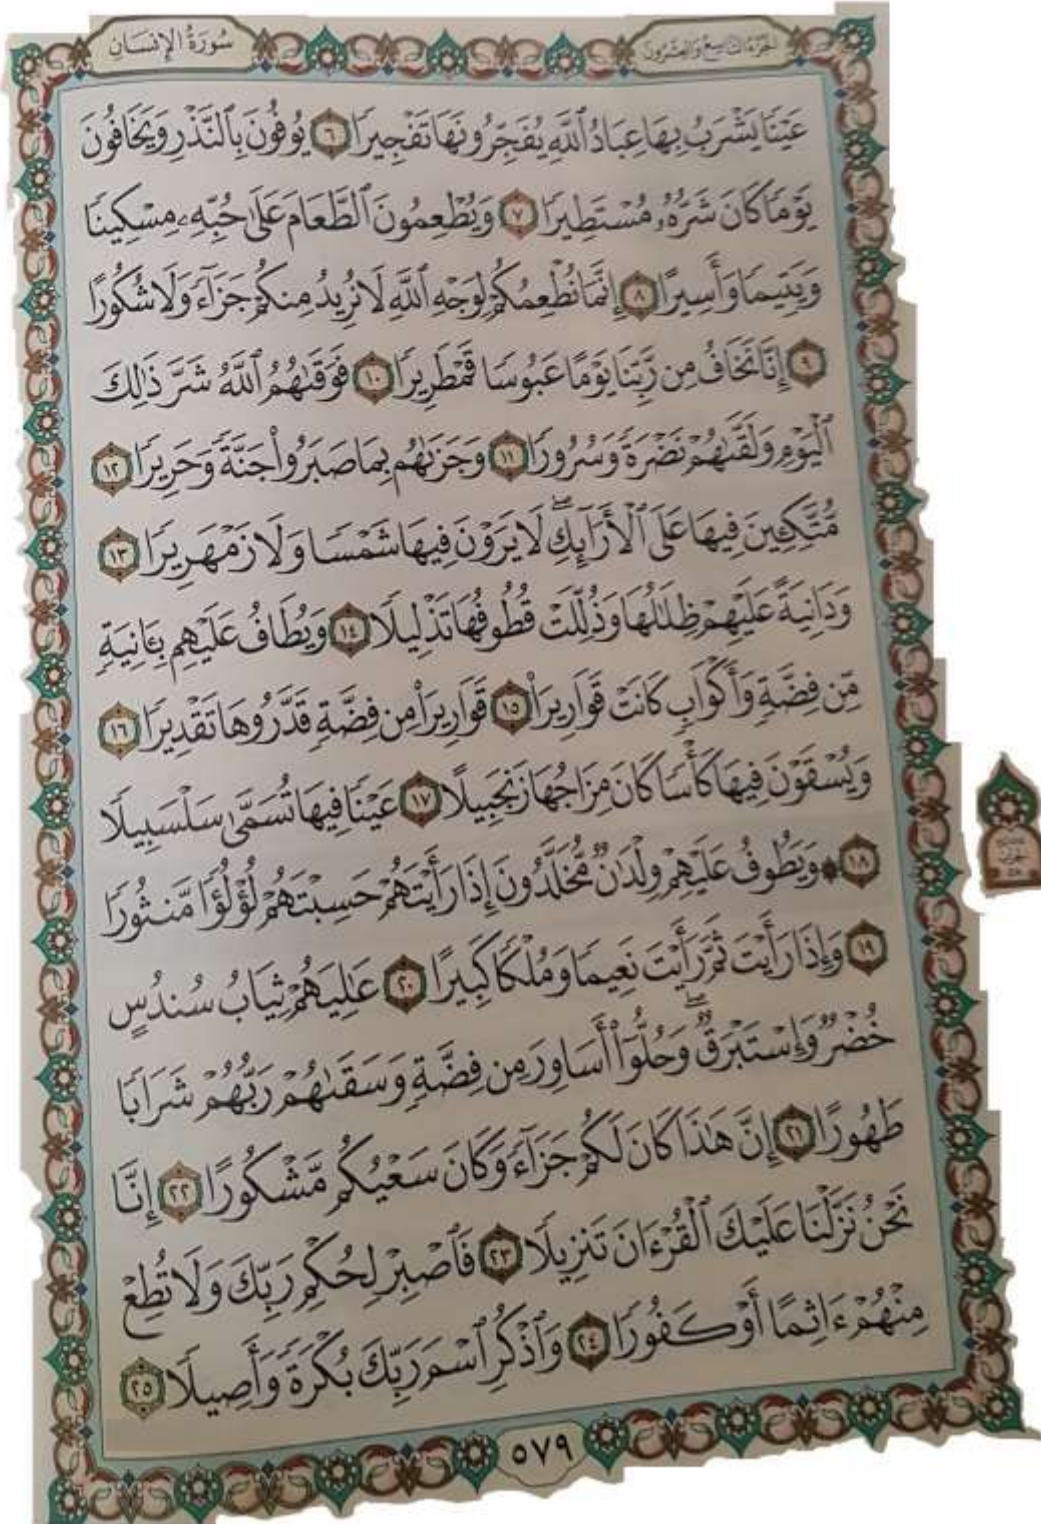 سُورَةُ الإِنسَانِ
الجُزْءُ التَّاسِعُ وَالعِشْرُونَ
عَيْنًا يَشْرَبُ بِهَا عِبَادُ ٱللَّهِ يُفَجِّرُونَهَا تَفْجِيرًا ٦ يُوفُونَ بِٱلنَّذْرِ وَيَخَافُونَ
يَوْمًا كَانَ شَرُّهُۥ مُسْتَطِيرًا ٧ وَيُطْعِمُونَ ٱلطَّعَامَ عَلَىٰ حُبِّهِۦ مِسْكِينًا
وَيَتِيمًا وَأَسِيرًا ٨ إِنَّمَا نُطْعِمُكُمْ لِوَجْهِ ٱللَّهِ لَا نُرِيدُ مِنكُمْ جَزَآءً وَلَا شُكُورًا
٩ إِنَّا نَخَافُ مِن رَّبِّنَا يَوْمًا عَبُوسًا قَمْطَرِيرًا ١٠ فَوَقَىٰهُمُ ٱللَّهُ شَرَّ ذَٰلِكَ
ٱلْيَوْمِ وَلَقَّىٰهُمْ نَضْرَةً وَسُرُورًا ١١ وَجَزَىٰهُم بِمَا صَبَرُوا۟ جَنَّةً وَحَرِيرًا ١٢
مُّتَّكِـِٔينَ فِيهَا عَلَى ٱلْأَرَآئِكِ ۖ لَا يَرَوْنَ فِيهَا شَمْسًا وَلَا زَمْهَرِيرًا ١٣
وَدَانِيَةً عَلَيْهِمْ ظِلَٰلُهَا وَذُلِّلَتْ قُطُوفُهَا تَذْلِيلًا ١٤ وَيُطَافُ عَلَيْهِم بِـَٔانِيَةٍ
مِّن فِضَّةٍ وَأَكْوَابٍ كَانَتْ قَوَارِيرَا۠ ١٥ قَوَارِيرَا۟ مِن فِضَّةٍ قَدَّرُوهَا تَقْدِيرًا ١٦
وَيُسْقَوْنَ فِيهَا كَأْسًا كَانَ مِزَاجُهَا زَنجَبِيلًا ١٧ عَيْنًا فِيهَا تُسَمَّىٰ سَلْسَبِيلًا
١٨ ۞ وَيَطُوفُ عَلَيْهِمْ وِلْدَٰنٌ مُّخَلَّدُونَ إِذَا رَأَيْتَهُمْ حَسِبْتَهُمْ لُؤْلُؤًا مَّنثُورًا
١٩ وَإِذَا رَأَيْتَ ثَمَّ رَأَيْتَ نَعِيمًا وَمُلْكًا كَبِيرًا ٢٠ عَٰلِيَهُمْ ثِيَابُ سُندُسٍ
خُضْرٌ وَإِسْتَبْرَقٌ ۖ وَحُلُّوٓا۟ أَسَاوِرَ مِن فِضَّةٍ وَسَقَىٰهُمْ رَبُّهُمْ شَرَابًا
طَهُورًا ٢١ إِنَّ هَٰذَا كَانَ لَكُمْ جَزَآءً وَكَانَ سَعْيُكُم مَّشْكُورًا ٢٢ إِنَّا
نَحْنُ نَزَّلْنَا عَلَيْكَ ٱلْقُرْءَانَ تَنزِيلًا ٢٣ فَٱصْبِرْ لِحُكْمِ رَبِّكَ وَلَا تُطِعْ
مِنْهُمْ ءَاثِمًا أَوْ كَفُورًا ٢٤ وَٱذْكُرِ ٱسْمَ رَبِّكَ بُكْرَةً وَأَصِيلًا ٢٥
٥٧٩